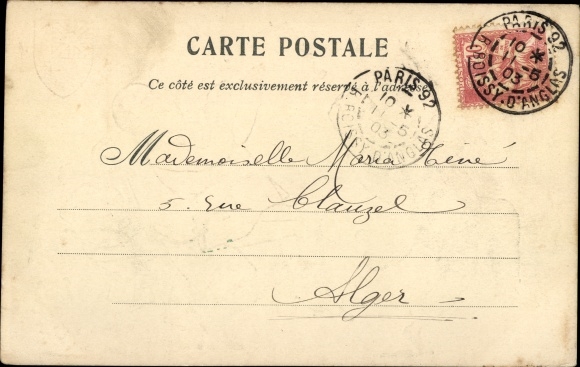 CARTE POSTALE
Ce côté est exclusivement réservé à l'adresse
PARIS 92
10 *
11 - 5
03
R. BOISSY-D'ANGLAS
PARIS 92
10 *
11 - 5
03
R. BOISSY-D'ANGLAS
Mademoiselle Maria
5. rue Clauzel
Alger